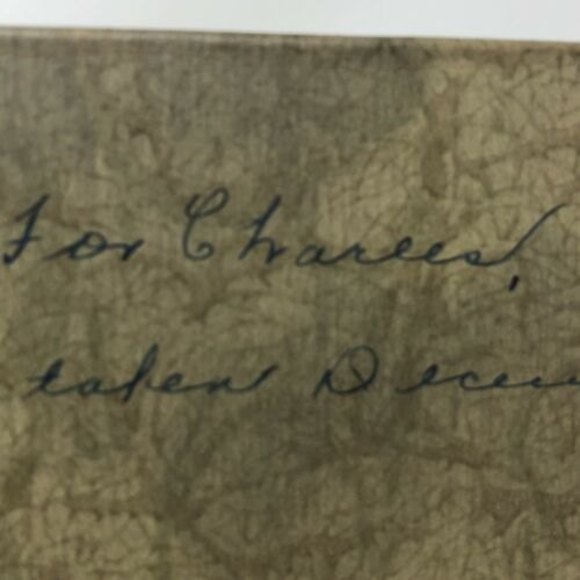 For Charles,
taken Decem